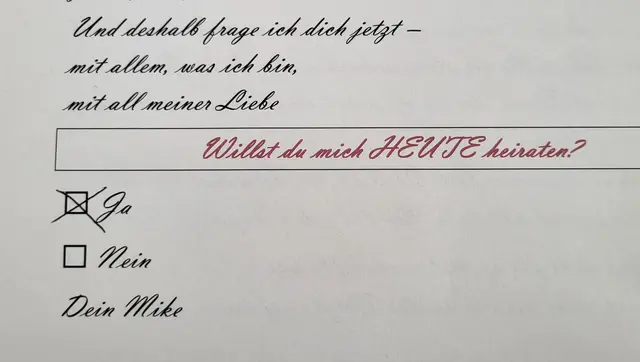 Und deshalb frage ich dich jetzt –
mit allem, was ich bin,
mit all meiner Liebe
Willst du mich HEUTE heiraten?
Ja
Nein
Dein Mike